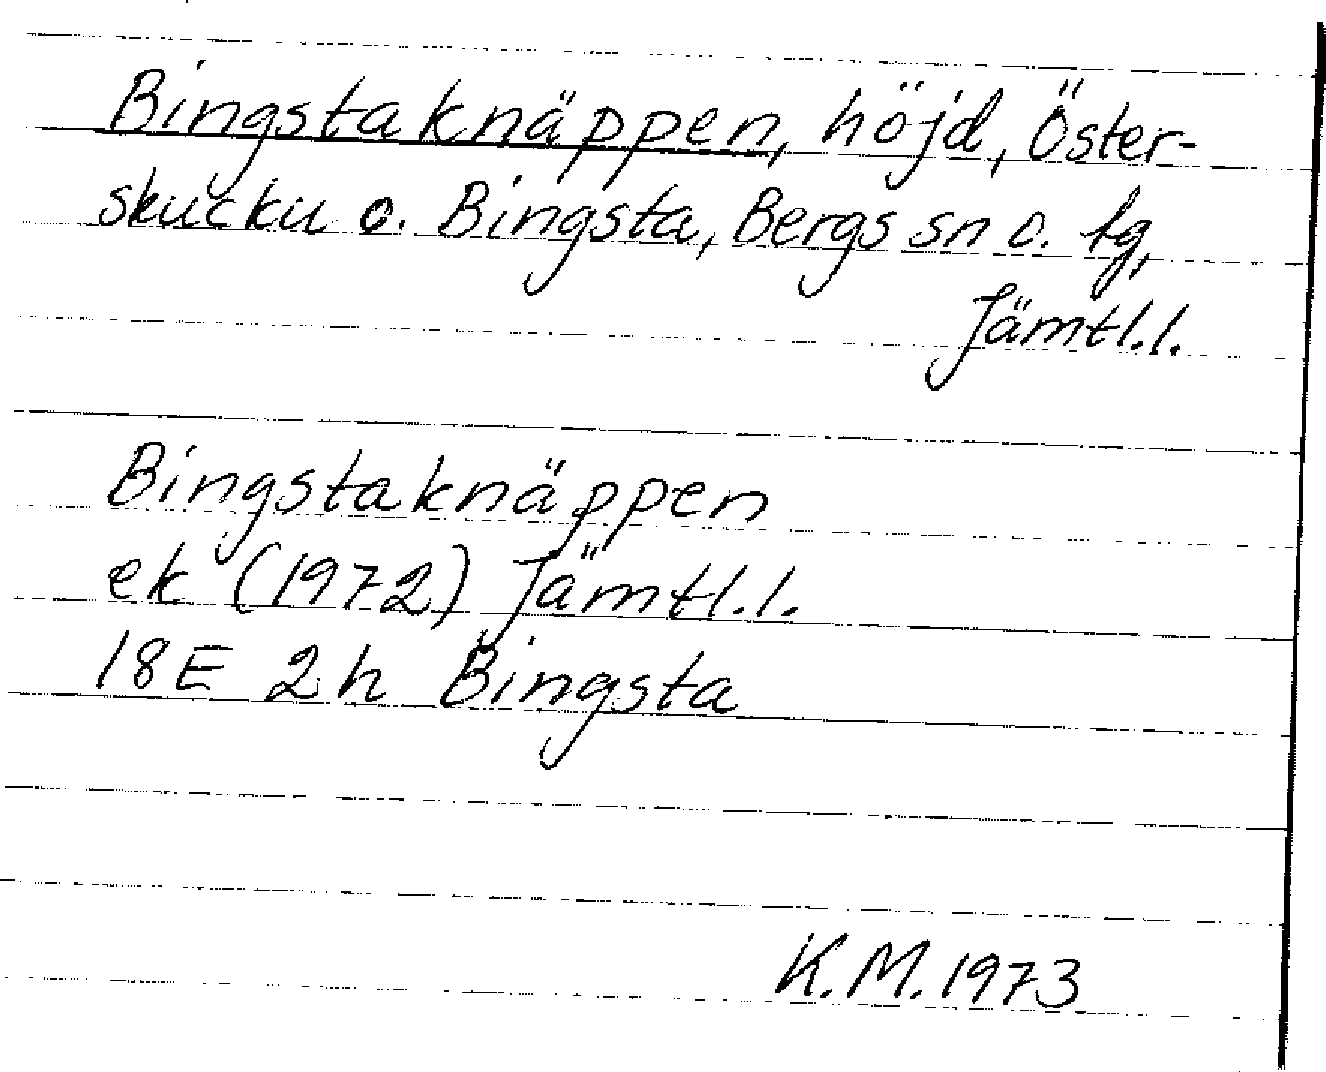 Bingstaknäppen, höjd, Öster-
skucku o. Bingsta, Bergs sn o. tg,
Jämtl.l.
Bingstaknäppen
ek (1972) Jämtl.l.
18E 2h Bingsta
K.M. 1973